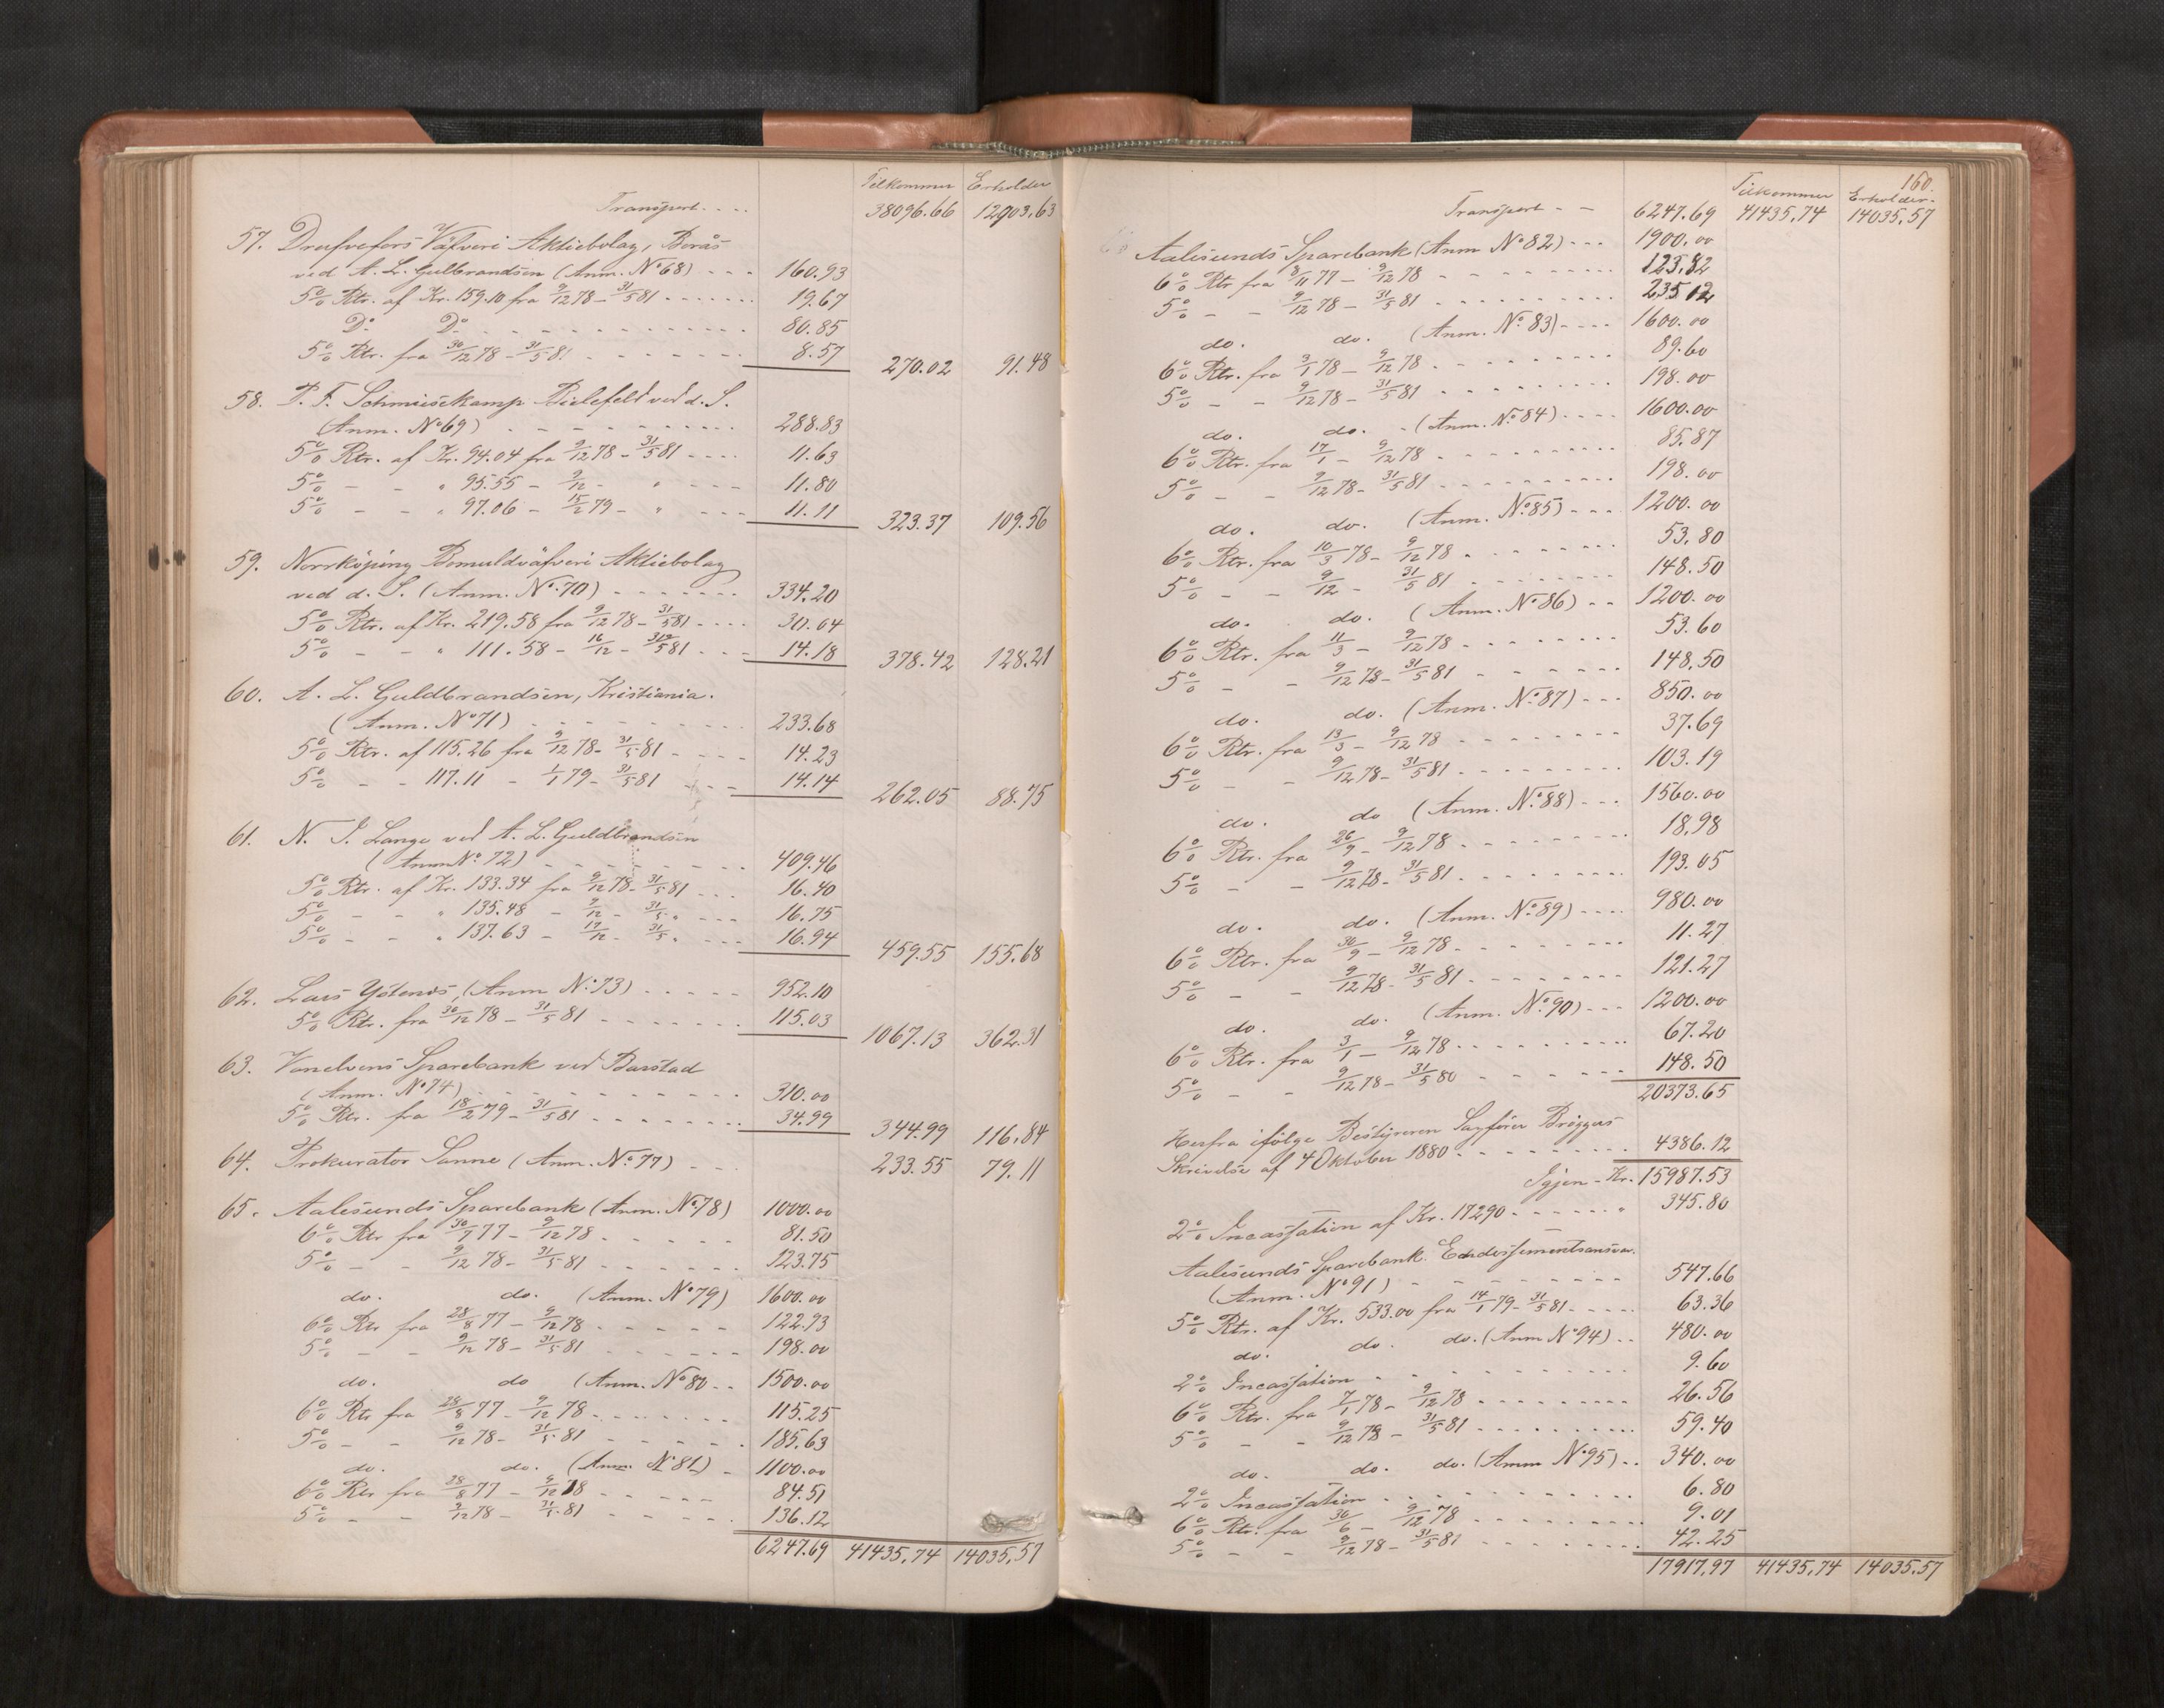 Tilkommer Erholder
Transport .... 38096.66 12903.63
57. Drufvefors Väfveri Aktiebolag, Borås
ved A. L. Gulbrandsen (Anm. No 68) - - - 160.93
5% Rtr. af Kr. 159.10 fra 9/12 78 - 31/5 81 ...... 19.67
Do Do - - - - - - - 80.85
5% Rtr. fra 30/12 78 - 31/5 81 - - - - - - 8.57 270.02 91.48
58. P. F. Schmiesekamp Bielefeld ved d. S.
(Anm. No 69) - - - - - - - 288.83
5% Rtr. af Kr. 94.04 fra 9/12 78 - 31/5 81 ---- 11.63
5% - - " 95.55 - 9/12 - " - - - - 11.80
5% - - " 97.06 - 15/2 79 - " - - - 11.11 323.37 109.56
59. Norrköping Bomuldväfveri Aktiebolag
ved d. S. (Anm. No. 70) - - - - - - 334.20
5% Rtr. af Kr. 219.58 fra 9/12 78 - 31/5 81 ---- 30.04
5% - - " 111.58 - 16/12 - 31/5 81 - - - 14.18 378.42 128.21
60. A. L. Guldbrandsen, Kristiania.
(Anm. No 71) - - - - - - - 233.68
5% Rtr. af 115.26 fra 9/12 78 - 31/5 81 - - - - 14.23
5% - - 117.11 - 1/1 79 - 31/5 81 - - - 14.14 262.05 88.75
61. N. J. Lange ved A. L. Guldbrandsen
(Anm No. 72) - - - - - - - 409.46
5% Rtr. af Kr. 133.34 fra 9/12 78 - 31/5 81 - - - 16.40
5% - - " 135.48 - 9/12 - 31/5 " - - - 16.75
5% - - " 137.63 - 17/12 - 31/5 " - - - 16.94 459.55 155.68
62. Lars (Anm No. 73) ..... 952.10
5% Rtr. fra 30/12 78 - 31/5 81 - - - - - - 115.03 1067.13 362.31
63. Vanelvens Sparebank ved Barstad
(Anm. No 74) - - - - - - - 310.00
5% Rtr. fra 18/2 79 - 31/5 81 - - - - - - 34.99 344.99 116.84
64. Prokurator Sanne (Anm. No. 77) - - - 233.55 79.11
65. Aalesunds Sparebank (Anm. No. 78) 1000.00
6% Rtr fra 30/7 77 - 9/12 78 - - - - - 81.50
5% - - 9/12 78 - 31/5 81 - - - - - 123.75
do. do. (Anm. No 79) 1600.00
6% Rtr fra 28/8 77 - 9/12 78 - - - - - 122.93
5% - - 9/12 78 - 31/5 81 - - - - - 198.00
do. do (Anm. No 80 - - 1500.00
6% Rtr fra 28/8 77 - 9/12 78 - - - - - 115.25
5% - - 9/12 78 - 31/5 81 - - - - - 185.63
do. do. (Anm. No 81) - 1100.00
6% Rtr fra 28/8 77 - 9/12 78 - - - - - 84.51
5% - - 9/12 78 - 31/5 81 - - - - - 136.12
6247.69 41435,74 14035,57
160.
Tilkommer Erholder.
Transport - - 6247.69 41435,74 14035,57
Aalesunds Sparebank (Anm No 82) - - - 1900.00
6% Rtr fra 8/11 77 - 9/12 78 - - - - - 123.82
5% - - 9/12 78 - 31/5 81 - - - - - 235 12
do. do. (Anm. No. 83) - - - - 1600.00
6% Rtr. fra 3/1 78 - 9/12 78 - - - - - 89.60
5% - - 9/12 78 - 31/5 81 - - - - - 198.00
do. do. - (Anm. No. 84) - - - - 1600.00
6% Rtr. fra 17/1 - 9/12 78 - - - - - 85.87
5% - - 9/12 78 - 31/5 81 - - - - - 198.00
do. do. (Anm. No. 85) - - - 1200.00
6% Rtr. fra 10/3 78 - 9/12 78 - - - - - 53.80
5% - - 9/12 - 31/5 81 - - - - - 148.50
do. do. (Anm. No 86) - - 1200.00
6% Rtr. fra 11/3 - 9/12 78 - - - - - 53.60
5% - - 9/12 78 - 31/5 81 - - - - - 148.50
do. do. (Anm. No. 87) - - - 850.00
6% Rtr. fra 13/3 - 9/12 78 - - - - - 37.69
5% - 9/12 78 - 31/5 81 - - - - - 103.19
do. do (Anm. No. 88) - - - 1560.00
6% Rtr. fra 26/9 - 9/12 78 - - - - - 18.98
5% - - 9/12 78 - 31/5 81 - - - - - 193.05
do. do. (Anm. No. 89) - - - - 980.00
6% Rtr. fra 30/9 - 9/12 78 - - - - - 11.27
5% - - 9/12 78 - 31/5 81 - - - - - 121.27
do. do. (Anm. No. 90) - - - 1200.00
6% Rtr. fra 3/1 - 9/12 78 - - - - - 67.20
5% - - 9/12 78 - 31/5 80 - - - - - 148.50
20373.65
Herfra ifølge Bestyreren Sagfører Brøggers
Skrivelse af 4 Oktober 1880 - - - - - - 4386.12
Igjen - Kr. 15987.53
2% Incassation af Kr. 17290 - - - - - - " 345.80
Aalesunds Sparebank. Endossementsansvar.
(Anm. No 91) - - - - - - - 547.66
5% Rtr. af Kr. 533.00 fra 14/1 79 - 31/5 81 - - - - 63.36
do. do. do. (Anm No 94) - - 480.00
2% Incassation - - - - - - - 9.60
6% Rtr. fra 7/1 78 - 9/12 78 - - - - - 26.56
5% - - 9/12 78 - 31/5 81 - - - - - 59.40
do. do. do. (Anm No 95) - - 340.00
2% Incassation - - - - - - - 6.80
6% Rtr. fra 30/6 - 9/12 78 - - - - - 9.01
5% - - 9/12 78 - 31/5 81 - - - - - 42.25
17917,97 41435,74 14035.57